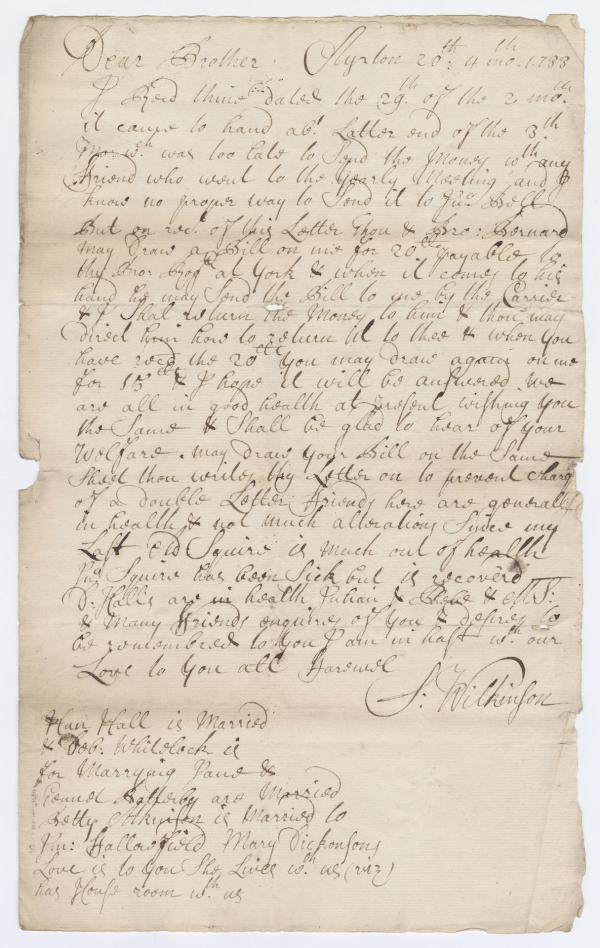 Dear Brother. Ayrton 20th: 4th mo. 1733
I Recd thine dated the 29th. of the 2 mo.
it came to hand abt. Latter end of the 3.th
Mo: wch was too late to Send the Money wth any
Friend who went to the Yearly Meeting and I
know no proper way to Send it to Jno Bell
But on rec. of this Letter Thou & Bro: Bernard
may Draw a Bill on me for 20 payable to
thy Bro: at York & when it comes to his
hand he may Send the Bill to me by the Carrier
& I Shal return the Money to him & thou may
Direct him how to return it to thee & when you
have recd the 20 you may draw again on me
for 15 & I hope it will be answered we
are all in good health at present wishing you
the Same & Shall be glad to hear of your
Welfare. may draw your Bill on the Same
Sheet thou writes thy Letter on to prevent charg
of a double Letter Friends here are generally
in health & not much alterations Since my
Last Old Squire is much out of health
Squire has been Sick but is recoverd
D: Halls are in health & &
& Many Friends enquires of you & desires to
be remembred to You I am in hast wth. our
Love to You all Farewel
S: Wilkinson
Hall is Married
& Deb: Whitelock is
for Marrying Jane &
Batterby are Married
Betty is Married to
Hallowfield Mary Dickonsons
Love is to You She Lives wth. us (viz)
has House room wth. us